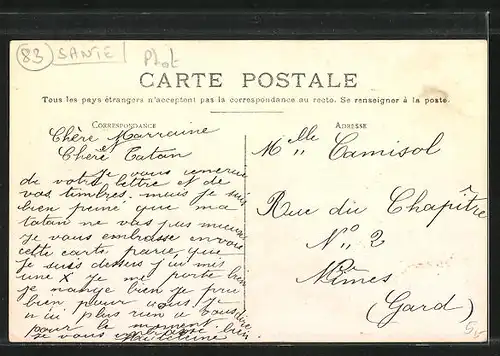 83 SANTE Phot
CARTE POSTALE
Tous les pays étrangers n'acceptent pas la correspondance au recto. Se renseigner à la poste.
CORRESPONDANCE
ADRESSE
Chère Marraine
et
Chère Tatan
Je vous remercie
de votre lettre et de
vos timbres. mais je suis
bien peiné que ma
tatan ne vas pas mieux
Je vous embrasse envoie
cette carte parce que
je suis dessus j'ai mis
une X je me porte bien
je mange bien je
bien pour vous je
n'ai plus rien a vous dire
pour le moment
je vous embrasse bien
Melle Camisol
Rue du Chapître
No 2
Nimes
(Gard)